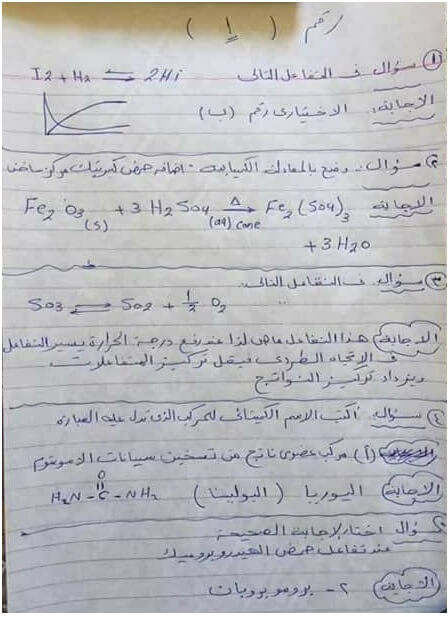 رقم ( 1 )
① سؤال في التفاعل التالى I2 + H2 ⇌ 2Hi
الاجابة: الاختيارى رقم (ب)
② سؤال: وضح بالمعادلات الكيميائية - اضافة حمض كبريتيك مركز ساخن
الاجابة Fe2O3 (s) + 3H2SO4 (aq) conc →Δ Fe2(SO4)3
+ 3H2O
③ سؤال: في التفاعل التالى:
SO3 ⇌ SO2 + ½ O2
الاجابة هذا التفاعل ماص لذا عند رفع درجة الحرارة يسير التفاعل
في الاتجاه الطردى فيقل تركيز المتفاعلات
ويزداد تركيز النواتج
④ سؤال: أكتب الاسم الكيميائى للمركب الذى تدل عليه العبارة
(أ) مركب عضوى ناتج من تسخين سيانات الامونيوم
الاجابة اليوريا (البولينا) H2N - C - NH2
O
سؤال اختار الإجابة الصحيحة
عند تفاعل حمض الهيدروبروميك
الاجابة ٢- بروموبروبان